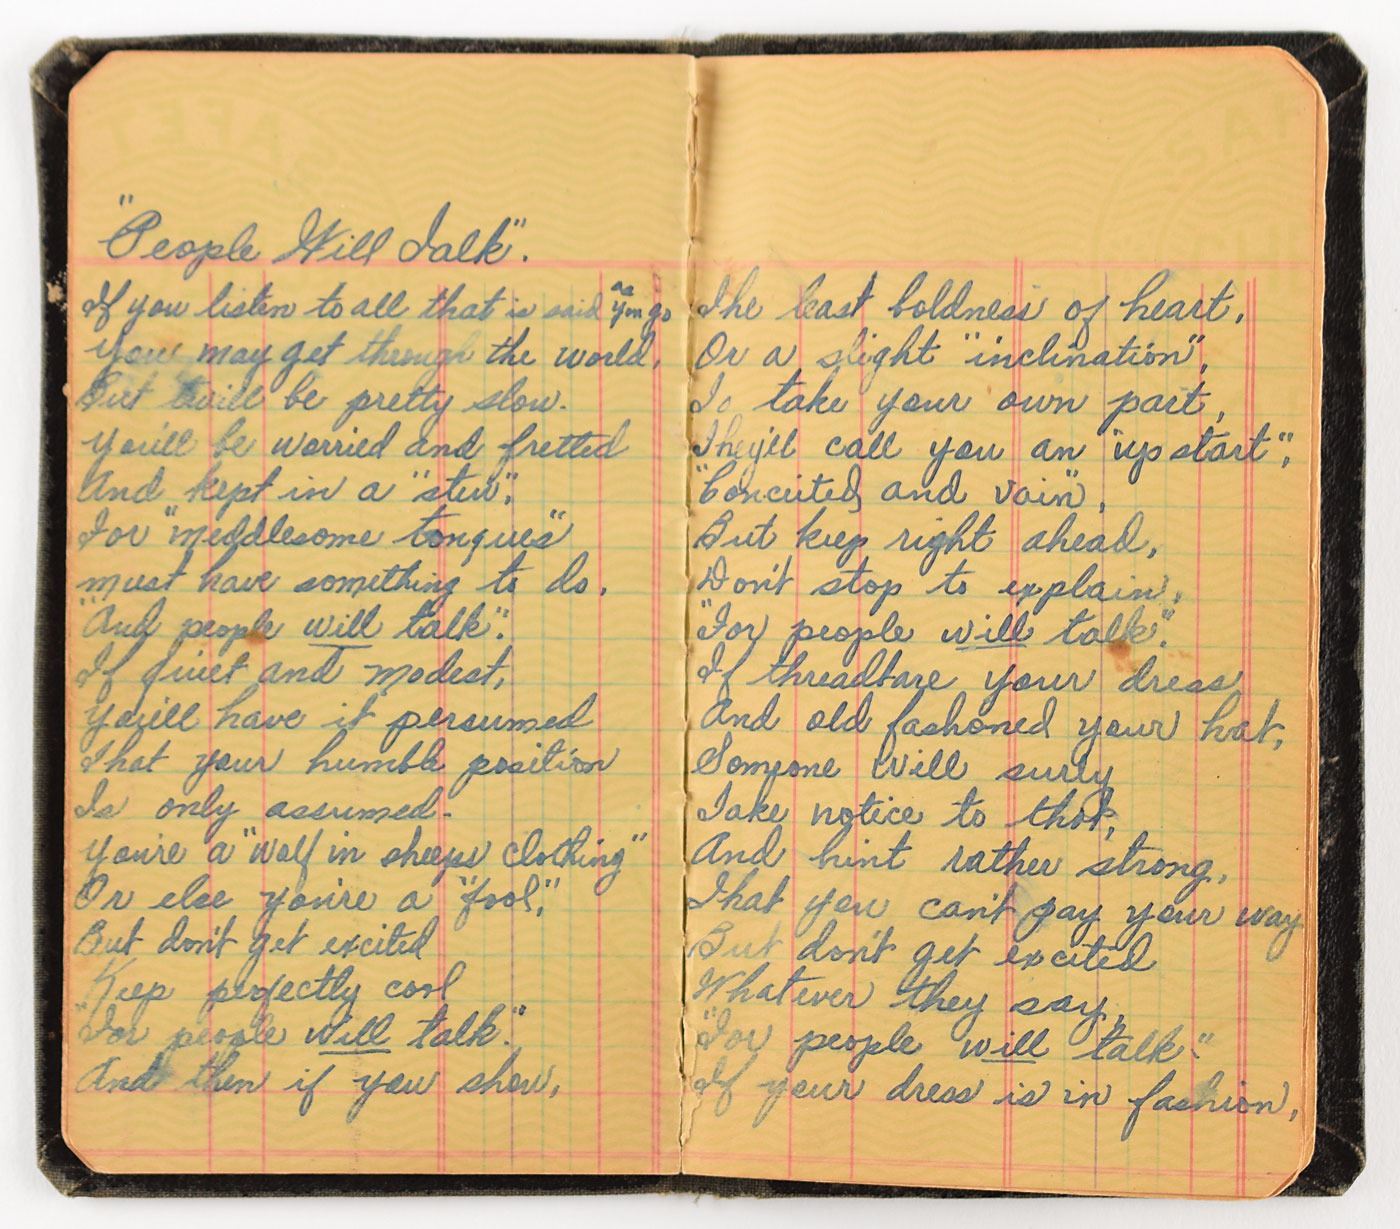 "People Will Talk".
If you listen to all that is said as you go
You may get through the world,
But twill be pretty slow.
You'll be worried and fretted
And kept in a "stew",
For "meddlesome tongues"
must have something to do.
"And people will talk".
If quiet and modest,
You'll have it persumed
That your humble position
Is only assumed.
You're a "wolf in sheeps clothing"
Or else you're a "fool",
But don't get excited
Keep perfectly cool
"For people will talk".
And then if you show,
The least boldness of heart,
Or a slight "inclination",
To take your own part,
They'll call you an "up start",
"Conceited and vain",
But keep right ahead,
Don't stop to explain,
"For people will talk".
If threadbare your dress
And old fashoned your hat,
Someone will surly
Take notice to that,
And hint rather strong,
That you can't pay your way
But don't get excited
Whatever they say,
"For people will talk."
If your dress is in fashion,
SAFET